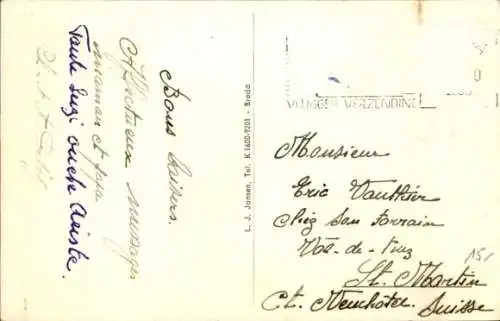 Bons baisers.
Affectueux messages
maman et papa
Tante Suzi oncle Ariste.
L. J. Jansen, Tel. K 1600-7201 - Breda
VLUGGER VERZENDING
Monsieur
Eric Vauthier
chez Son Parrain
Val-de-Ruz
St. Martin
Ct. Neuchâtel. Suisse
15.